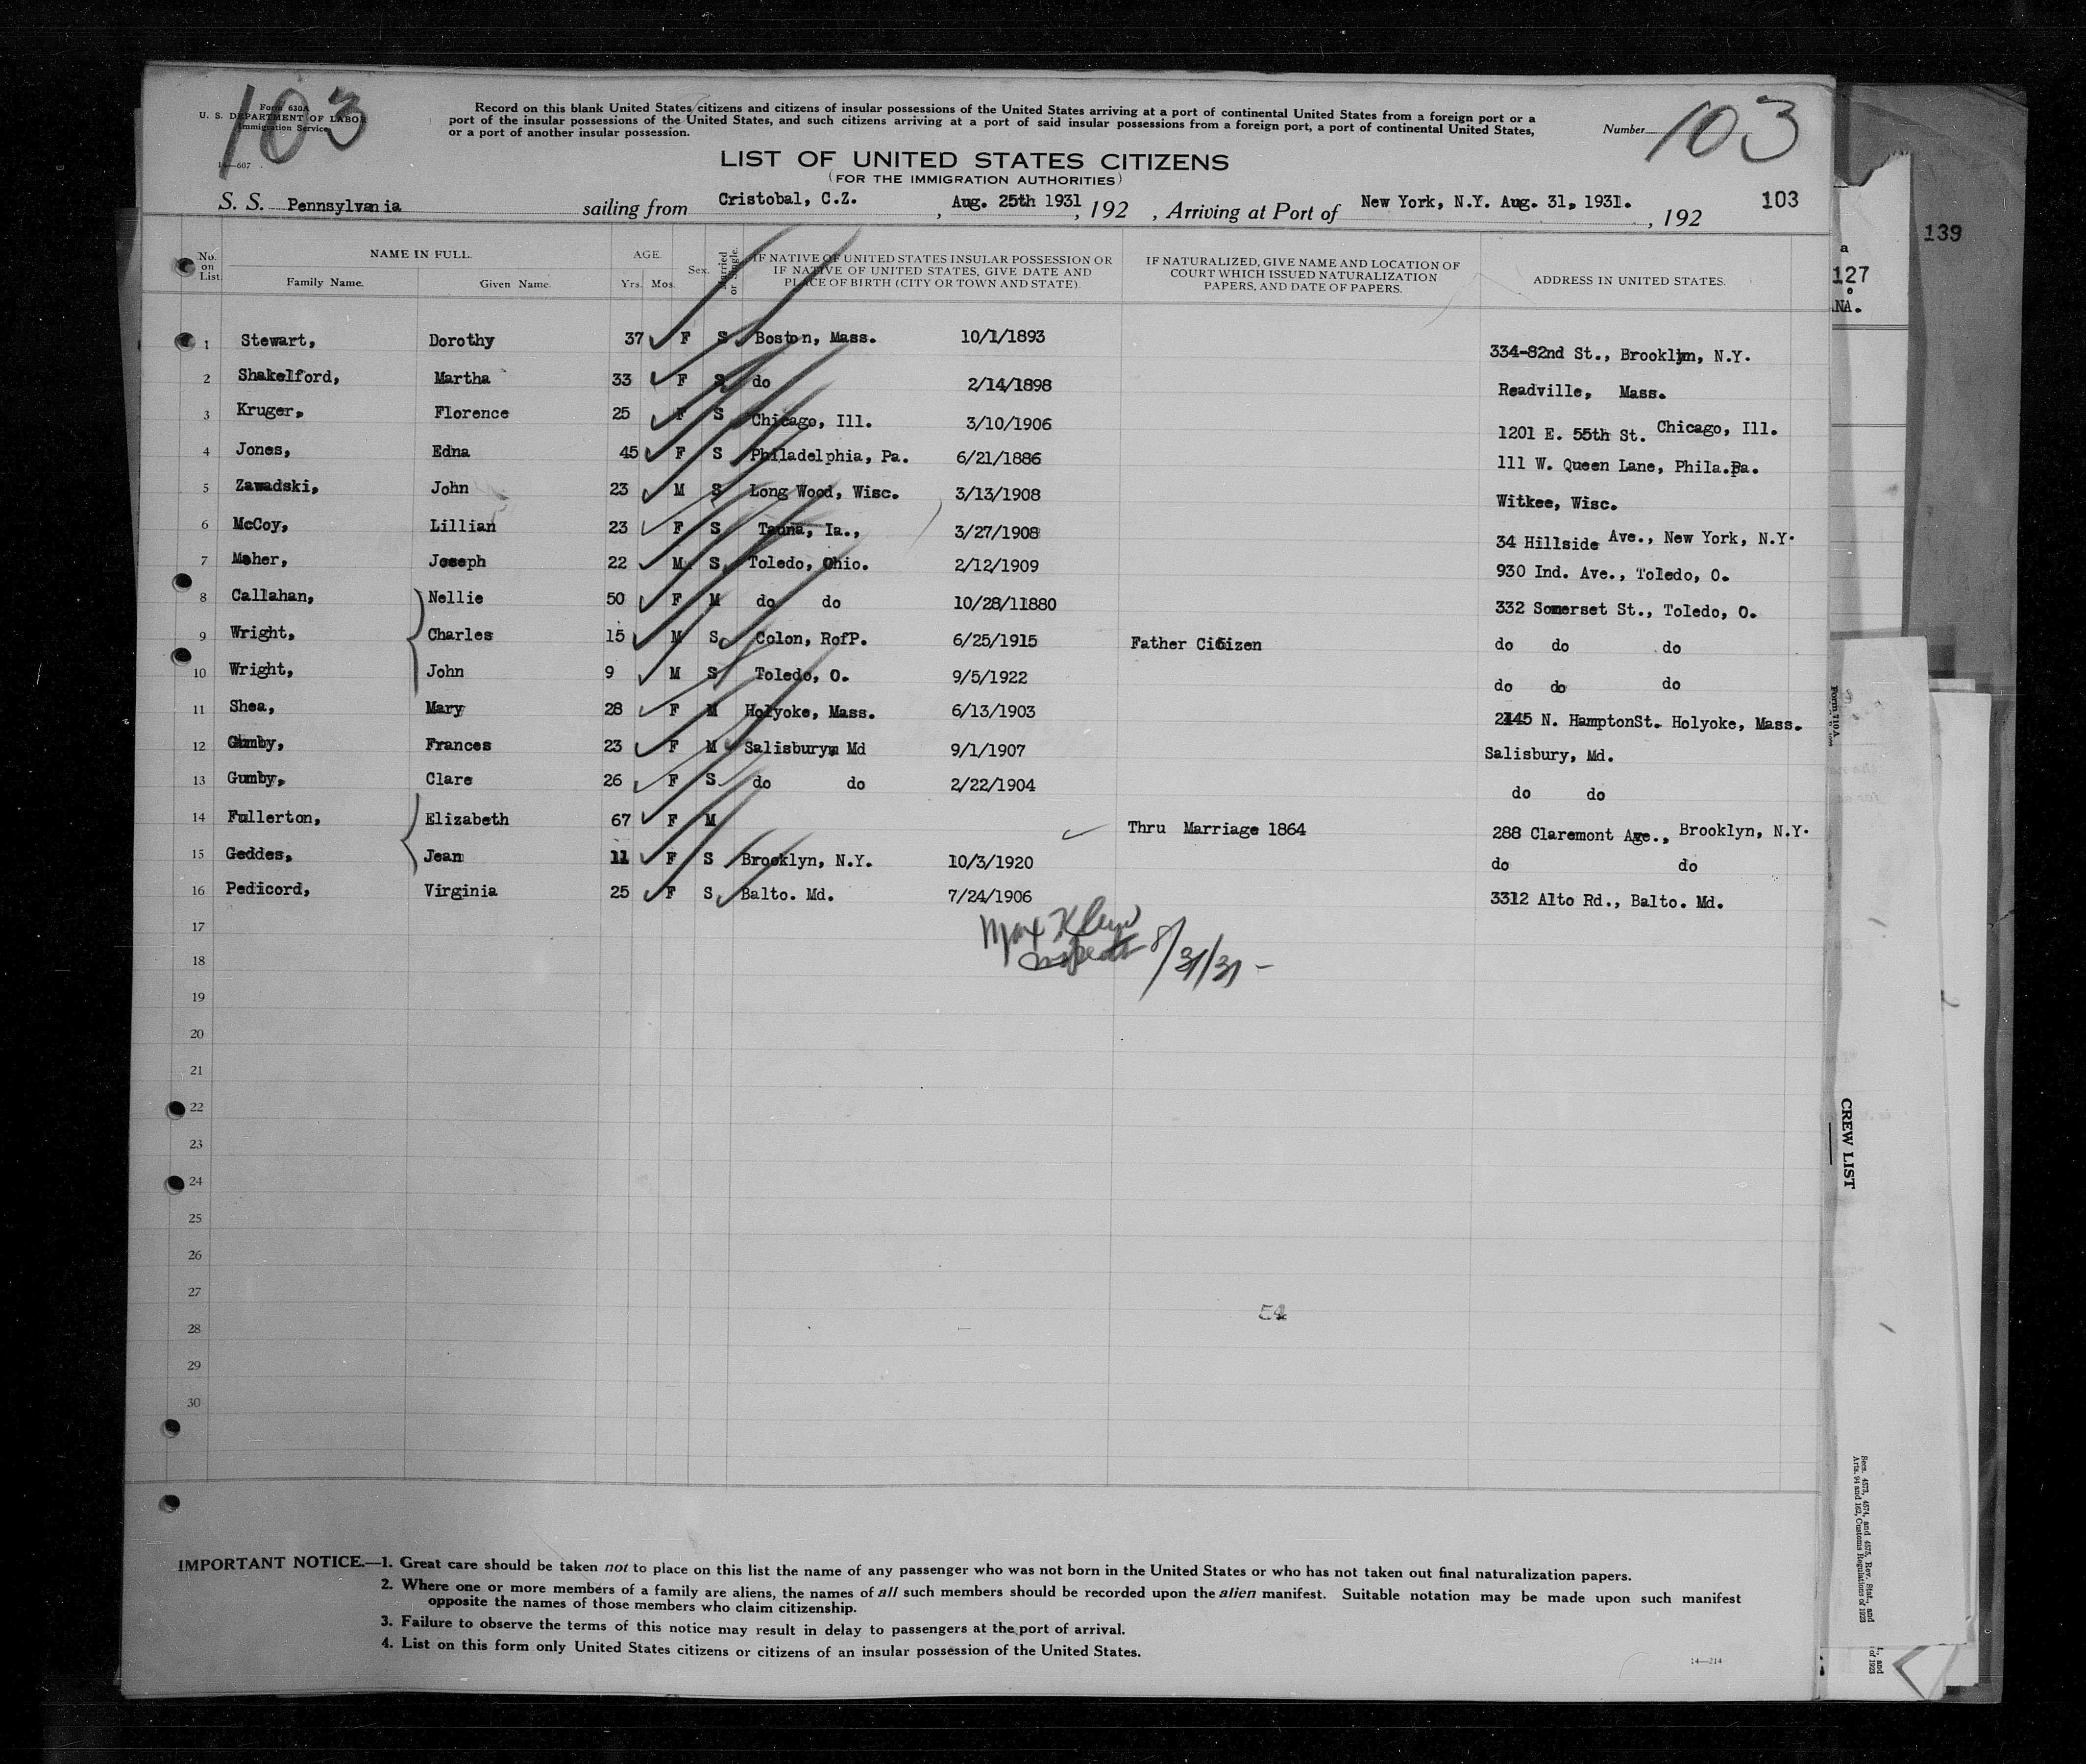 103
Form 630A
U. S. DEPARTMENT OF LABOR
Immigration Service
Record on this blank United States citizens and citizens of insular possessions of the United States arriving at a port of continental United States from a foreign port or a
port of the insular possessions of the United States, and such citizens arriving at a port of said insular possessions from a foreign port, a port of continental United States,
or a port of another insular possession.
Number 103
LIST OF UNITED STATES CITIZENS
(FOR THE IMMIGRATION AUTHORITIES)
S. S. Pennsylvania sailing from Cristobal, C.Z. , Aug. 25th 1931, 192 , Arriving at Port of New York, N.Y. Aug. 31, 1931. , 192 103
No. on List. NAME IN FULL. AGE. Sex. Married or Single. IF NATIVE OF UNITED STATES INSULAR POSSESSION OR IF NATIVE OF UNITED STATES, GIVE DATE AND PLACE OF BIRTH (CITY OR TOWN AND STATE). IF NATURALIZED, GIVE NAME AND LOCATION OF COURT WHICH ISSUED NATURALIZATION PAPERS, AND DATE OF PAPERS. ADDRESS IN UNITED STATES.
Family Name. Given Name. Yrs. Mos.
1 Stewart, Dorothy 37 F S Boston, Mass. 10/1/1893 334-82nd St., Brooklyn, N.Y.
2 Shakelford, Martha 33 F S do 2/14/1898 Readville, Mass.
3 Kruger, Florence 25 F S Chicago, Ill. 3/10/1906 1201 E. 55th St. Chicago, Ill.
4 Jones, Edna 45 F S Philadelphia, Pa. 6/21/1886 111 W. Queen Lane, Phila.Pa.
5 Zawadski, John 23 M S Long Wood, Wisc. 3/13/1908 Witkee, Wisc.
6 McCoy, Lillian 23 F S Ia., 3/27/1908 34 Hillside Ave., New York, N.Y.
7 Maher, Joseph 22 M S Toledo, Ohio. 2/12/1909 930 Ind. Ave., Toledo, O.
8 Callahan, Nellie 50 F M do do 10/28/11880 332 Somerset St., Toledo, O.
9 Wright, Charles 15 M S Colon, RofP. 6/25/1915 Father Citizen do do do
10 Wright, John 9 M S Toledo, O. 9/5/1922 do do do
11 Shea, Mary 28 F M Holyoke, Mass. 6/13/1903 N. HamptonSt. Holyoke, Mass.
12 Gumby, Frances 23 F M Salisbury, Md 9/1/1907 Salisbury, Md.
13 Gumby, Clare 26 F S do do 2/22/1904 do do
14 Fullerton, Elizabeth 67 F M Thru Marriage 1864 288 Claremont Ave., Brooklyn, N.Y.
15 Geddes, Jean 11 F S Brooklyn, N.Y. 10/3/1920 do do
16 Pedicord, Virginia 25 F S Balto. Md. 7/24/1906 3312 Alto Rd., Balto. Md.
17
Max Klein
8/31/31
18
19
20
21
22
23
24
25
26
27
54
28
29
30
IMPORTANT NOTICE.—1. Great care should be taken not to place on this list the name of any passenger who was not born in the United States or who has not taken out final naturalization papers.
2. Where one or more members of a family are aliens, the names of all such members should be recorded upon the alien manifest. Suitable notation may be made upon such manifest
opposite the names of those members who claim citizenship.
3. Failure to observe the terms of this notice may result in delay to passengers at the port of arrival.
4. List on this form only United States citizens or citizens of an insular possession of the United States.
14—214
139
a
127
NA.
Form 710A
CREW LIST
Secs. 4573, 4574, and 4575, Rev. Stat., and
Arts. 94 and 162, Customs Regulations of 1923